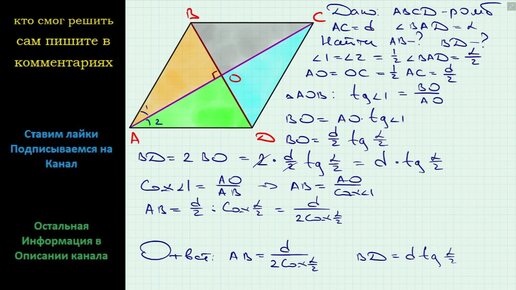 кто смог решить
сам пишите в
комментариях
Ставим лайки
Подписываемся на
Канал
Остальная
Информация в
Описании канала
B
C
O
1
2
A
D
Дано: ABCD - ромб
AC = d ∠BAD = α
Найти AB - ? BD - ?
∠1 = ∠2 = 1/2 ∠BAD = α/2
AO = OC = 1/2 AC = d/2
△AOB: tg∠1 = BO/AO
BO = AO · tg∠1
BO = d/2 tg α/2
BD = 2 BO = 2 · d/2 tg α/2 = d · tg α/2
Cos∠1 = AO/AB ⇒ AB = AO/Cos∠1
AB = d/2 : Cos α/2 = d/(2Cos α/2)
Ответ: AB = d/(2Cos α/2) BD = d tg α/2